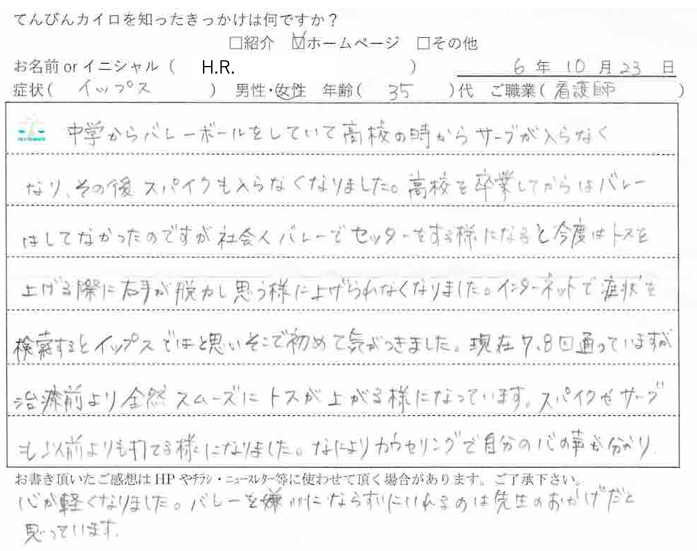 てんびんカイロを知ったきっかけは何ですか？
□紹介 ☑ホームページ □その他
お名前 or イニシャル（ H.R. ） 6 年 10 月 23 日
症状（ イップス ） 男性・女性 年齢（ 35 ）代 ご職業（ 看護師
中学からバレーボールをしていて高校の時からサーブが入らなく
なり、その後スパイクも入らなくなりました。高校を卒業してからはバレー
はしてなかったのですが社会人バレーでセッターをする様になると今度はトスを
上げる際に右手が脱力し思う様に上げられなくなりました。インターネットで症状を
検索するとイップスではと思いそこで初めて気がつきました。現在7、8回通っていますが
治療前より全然スムーズにトスが上がる様になっています。スパイクやサーブ
も以前よりも打てる様になりました。なによりカウセリングで自分の心の声が分かり
お書き頂いたご感想は HP やチラシ・ニュースレター等に使わせて頂く場合があります。ご了承下さい。
心が軽くなりました。バレーを嫌いにならずにいれるのは先生のおかげだと
思っています。